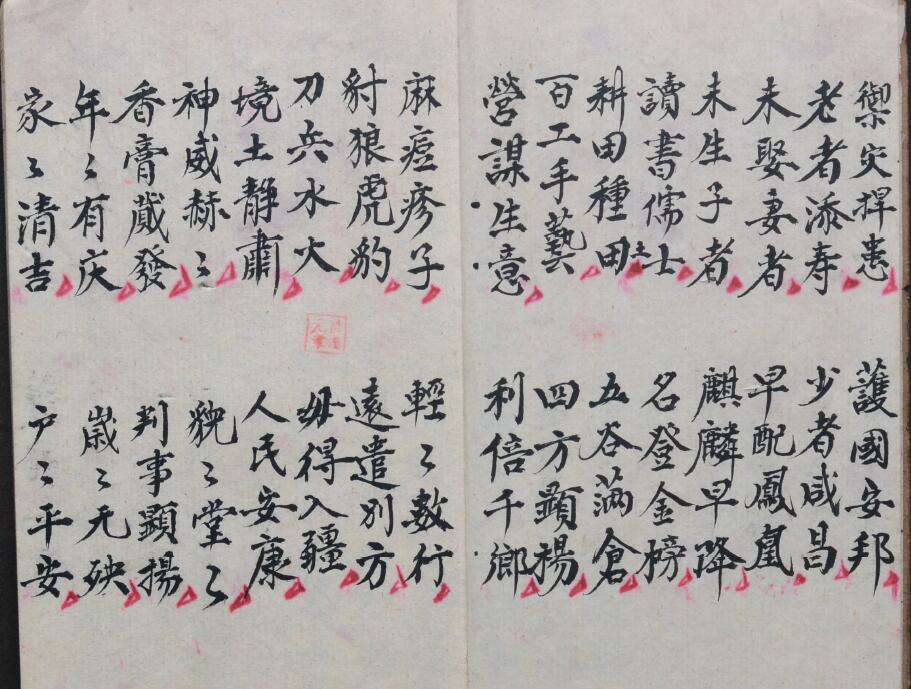 禦灾捍患
護國安邦
老者添寿
少者咸昌
未娶妻者
早配鳳凰
未生子者
麒麟早降
讀書儒士
名登金榜
耕田種田
五谷滿倉
百工手藝
四方顕揚
營謀生意
利倍千鄉
麻痘疹子
輕〻數行
豺狼虎豹
遠遣别方
刀兵水火
毋得入疆
境土静肅
人民安康
神威赫〻
貌〻堂〻
香膏蕆發
判事顕揚
年〻有庆
歳〻无殃
家〻清吉
户〻平安